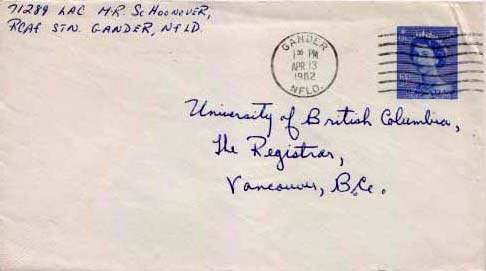 71289 LAC HR SCHOONOVER,
RCAF STN. GANDER, NFLD.
GANDER
1 00 PM
APR 13
1962
NFLD.
University of British Columbia,
The Registrar,
Vancouver, B.C.